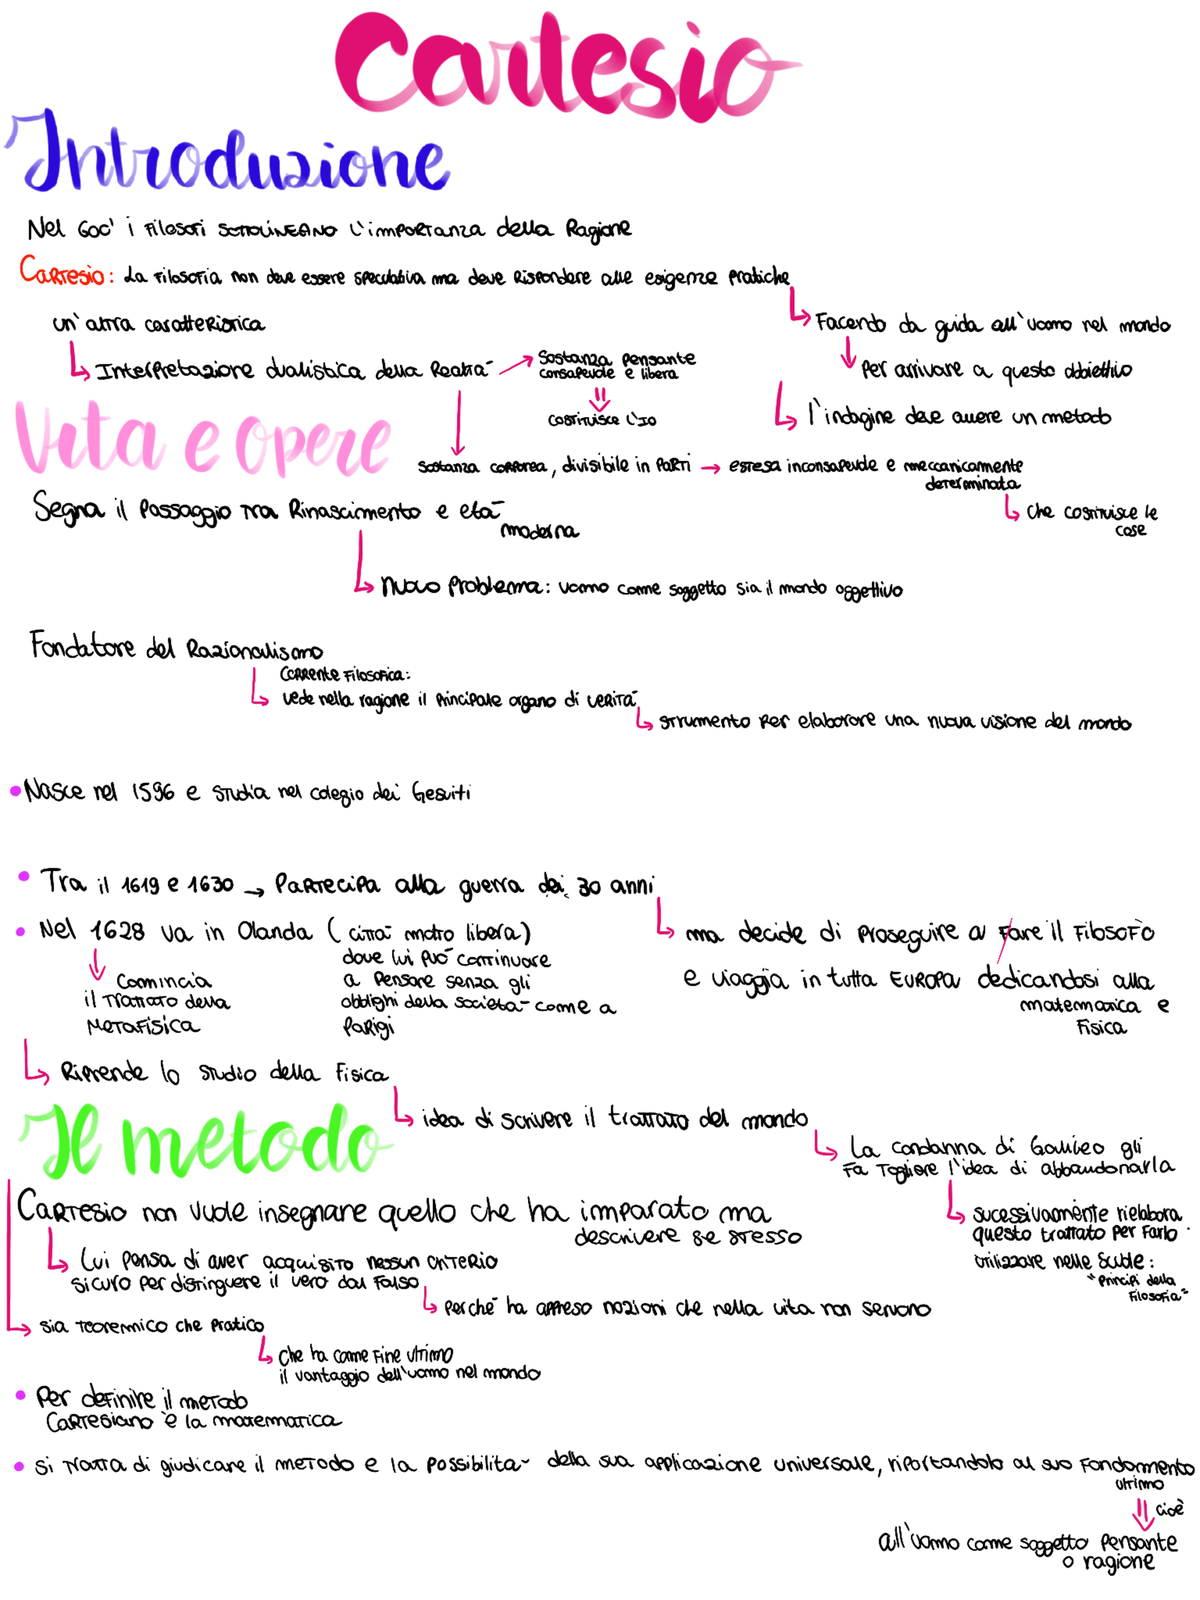 Cartesio
Introduzione
Nel 600' i filosofi sottolineano l'importanza della Ragione
Cartesio: La filosofia non deve essere speculativa ma deve rispondere alle esigenze pratiche
Facendo da guida all'uomo nel mondo
per arrivare a questo obbiettivo
l'indagine deve avere un metodo
un'altra caratteristica
Interpretazione dualistica della Realtà
Sostanza pensante
consapevole e libera
costituisce l'io
Sostanza corporea, divisibile in parti → estesa inconsapevole e meccanicamente
determinata
che costituisce le
cose
Vita e opere
Segna il passaggio tra Rinascimento e età
moderna
Nuovo problema: uomo come soggetto sia il mondo oggettivo
Fondatore del Razionalismo
corrente filosofica:
vede nella ragione il principale organo di verità
strumento per elaborare una nuova visione del mondo
• Nasce nel 1596 e studia nel colegio dei Gesuiti
• Tra il 1619 e 1630 → Partecipa alla guerra dei 30 anni
ma decide di proseguire a fare il filosofo
e viaggia in tutta Europa dedicandosi alla
matematica e
fisica
• Nel 1628 va in Olanda (città molto libera)
dove lui può continuare
a pensare senza gli
obblighi della società come a
Parigi
Comincia
il trattato della
Metafisica
Riprende lo studio della fisica
idea di scrivere il trattato del mondo
La condanna di Galileo gli
fa togliere l'idea di abbandonarla
sucessivamente rielabora
questo trattato per farlo
utilizzare nelle scuole:
"Principi della
filosofia"
Il metodo
Cartesio non vuole insegnare quello che ha imparato ma
descrivere se stesso
Lui pensa di aver acquisito nessun criterio
sicuro per distinguere il vero dal falso
perché ha appreso nozioni che nella vita non servono
sia teoremico che pratico
che ha come fine ultimo
il vantaggio dell'uomo nel mondo
• Per definire il metodo
cartesiano è la matematica
• Si tratta di giudicare il metodo e la possibilità della sua applicazione universale, riportandolo al suo fondamento
ultimo
cioè
all'uomo come soggetto pensante
o ragione